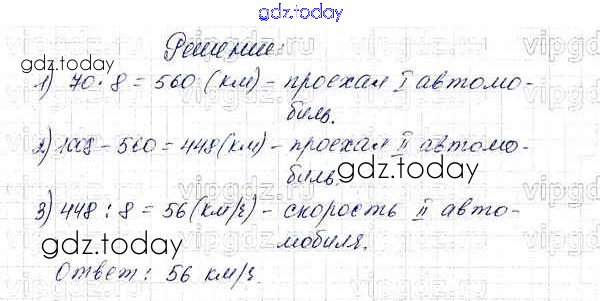 gdz.today
Решение:
1) 70 · 8 = 560 (км) - проехал I автомо-
gdz.today
биль.
2) 1008 - 560 = 448 (км) - проехал II автомо-
gdz.today
биль.
3) 448 : 8 = 56 (км/ч) - скорость II авто-
gdz.today
мобиля.
Ответ: 56 км/ч.